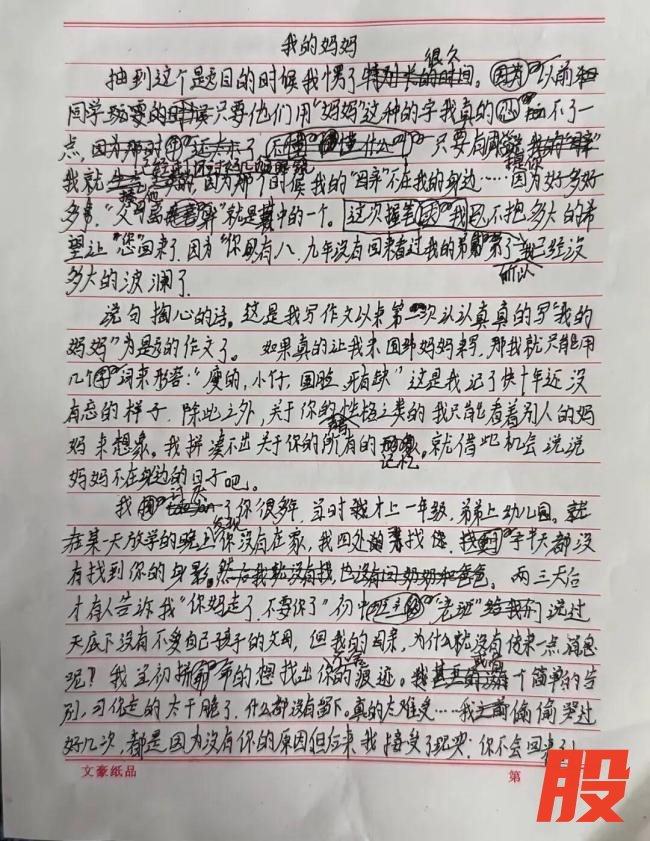 我的妈妈
很久
抽到这个是题目的时候我愣了。因为以前
同学只要他们用"妈妈"这种的字我真的忍不了一
点,因为那时
我就因为那个时候我的不在我的身边……因为好多好
多事,就是其中的一个。这次提笔我已不把多大的希
望让"您"回来了,因为"你"已有八、九年没有回来看过我和弟弟了所以我已经没
多大的波澜了
说句掏心的话。这是我写作文以来第一次认认真真的写"我的
妈妈"为题的作文了。如果真的让我来写妈妈,那我就只能用
几个词来形容:"瘦的,小个,圆脸,牙有缺"这是我记了快十年还没
有忘的样子,除此之外,关于你的性格之类的我只能看着别人的妈
妈来想象。我拼凑不出关于你的所有的记忆。就借此机会说说
妈妈不在身边的日子吧。
我讨厌了你很多年,当时我才上一年级,弟弟上幼儿园。
在某一天放学的晚上发现你没有在家,我四处的寻找您,找了半天都没
有找到你的身影。然后我就没有找,也没有问奶奶和爸爸。两三天后
才有人告诉我"你妈走了,不要你了"初中班主任"老班"给我们说过
天底下没有不爱自己孩子的父母,但我的母亲,为什么就没有传来一点消息
呢?我当初拼命的想找出你的痕迹。我一个简单的告
别,可你走的太干脆了,什么都没有留下。真的太难受……我偷偷哭过
好几次,都是因为没有你的原因但后来我接受了现实:你不会回来了!
文豪纸品
第
股